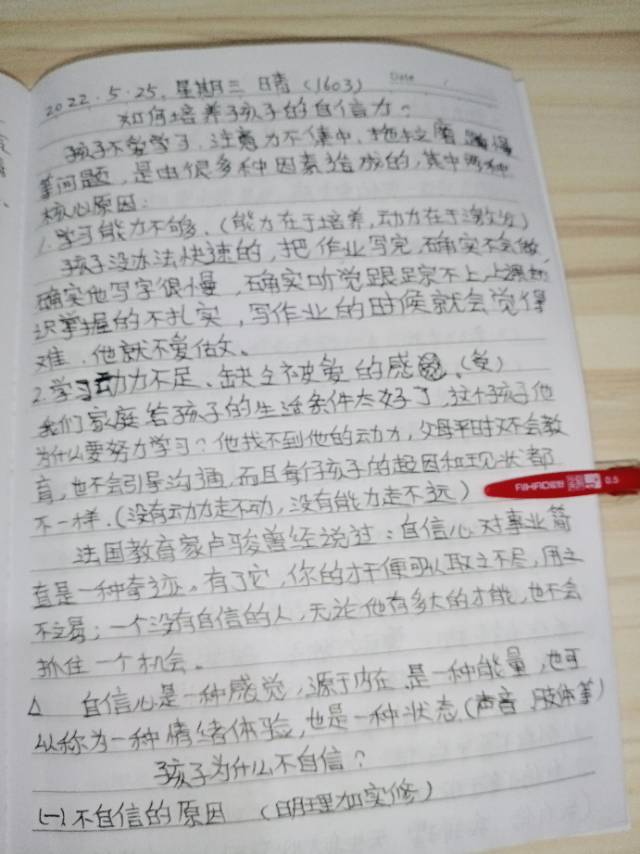 2022.5.25.星期三 晴 (1603)
Date
如何培养孩子的自信力?
孩子不爱学习,注意力不集中,拖拉磨蹭得
等问题,是由很多种因素造成的,其中两种
核心原因:
1.学习能力不够.(能力在于培养,动力在于激发)
孩子没办法快速的,把作业写完,确实不会做,
确实他写字很慢,确实听觉跟足家不上,上课知
识掌握的不扎实,写作业的时候就会觉得
难,他就不爱做。
2.学习动力不足、缺乏被爱的感觉.(爱)
我们家庭给孩子的生活条件太好了,这个孩子他
为什么要努力学习?他找不到他的动力,父母平时又不会教
育,也不会引导沟通,而且每个孩子的起因和现状都
不一样.(没有动力走不动,没有能力走不远)
法国教育家卢骏曾经说过:自信心对事业简
直是一种奇迹,有了它,你的才干便可以取之不尽,用之
不交易;一个没有自信的人,无论他有多大的才能,也不会
抓住一个机会。
△ 自信心是一种感觉,源于内在,是一种能量,也可
以称为一种情绪体验,也是一种状态(声音、肢体等)
孩子为什么不自信?
(一)不自信的原因 (明理加实修)
0.5